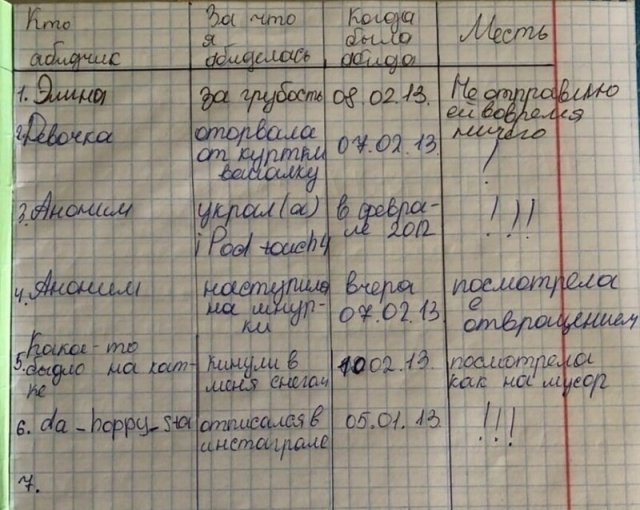 Кто абидчик | За что я абиделась | Когда было абида | Месть
1. Элина | за грубость | 08.02.13. | Не отправлю ей вовремя ничего
2. Девочка | оторвала от куртки вешалку | 07.02.13 | !
3. Аноним | украл(а) iPod touch 4 | в феврале 2012 | !!!
4. Аноним | наступила на шнурки | вчера 07.02.13 | посмотрела с отвращением
5. Какое-то быдло на катке | кинули в меня снегом | 10.02.13. | посмотрела как на мусор
6. da_happy_star | отписался в инстаграме | 05.01.13 | !!!
7.